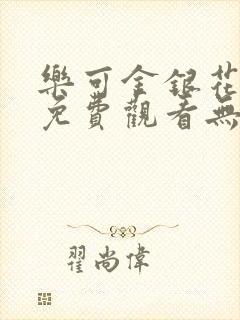 樂可金銀花
免費觀看無
翟尚偉